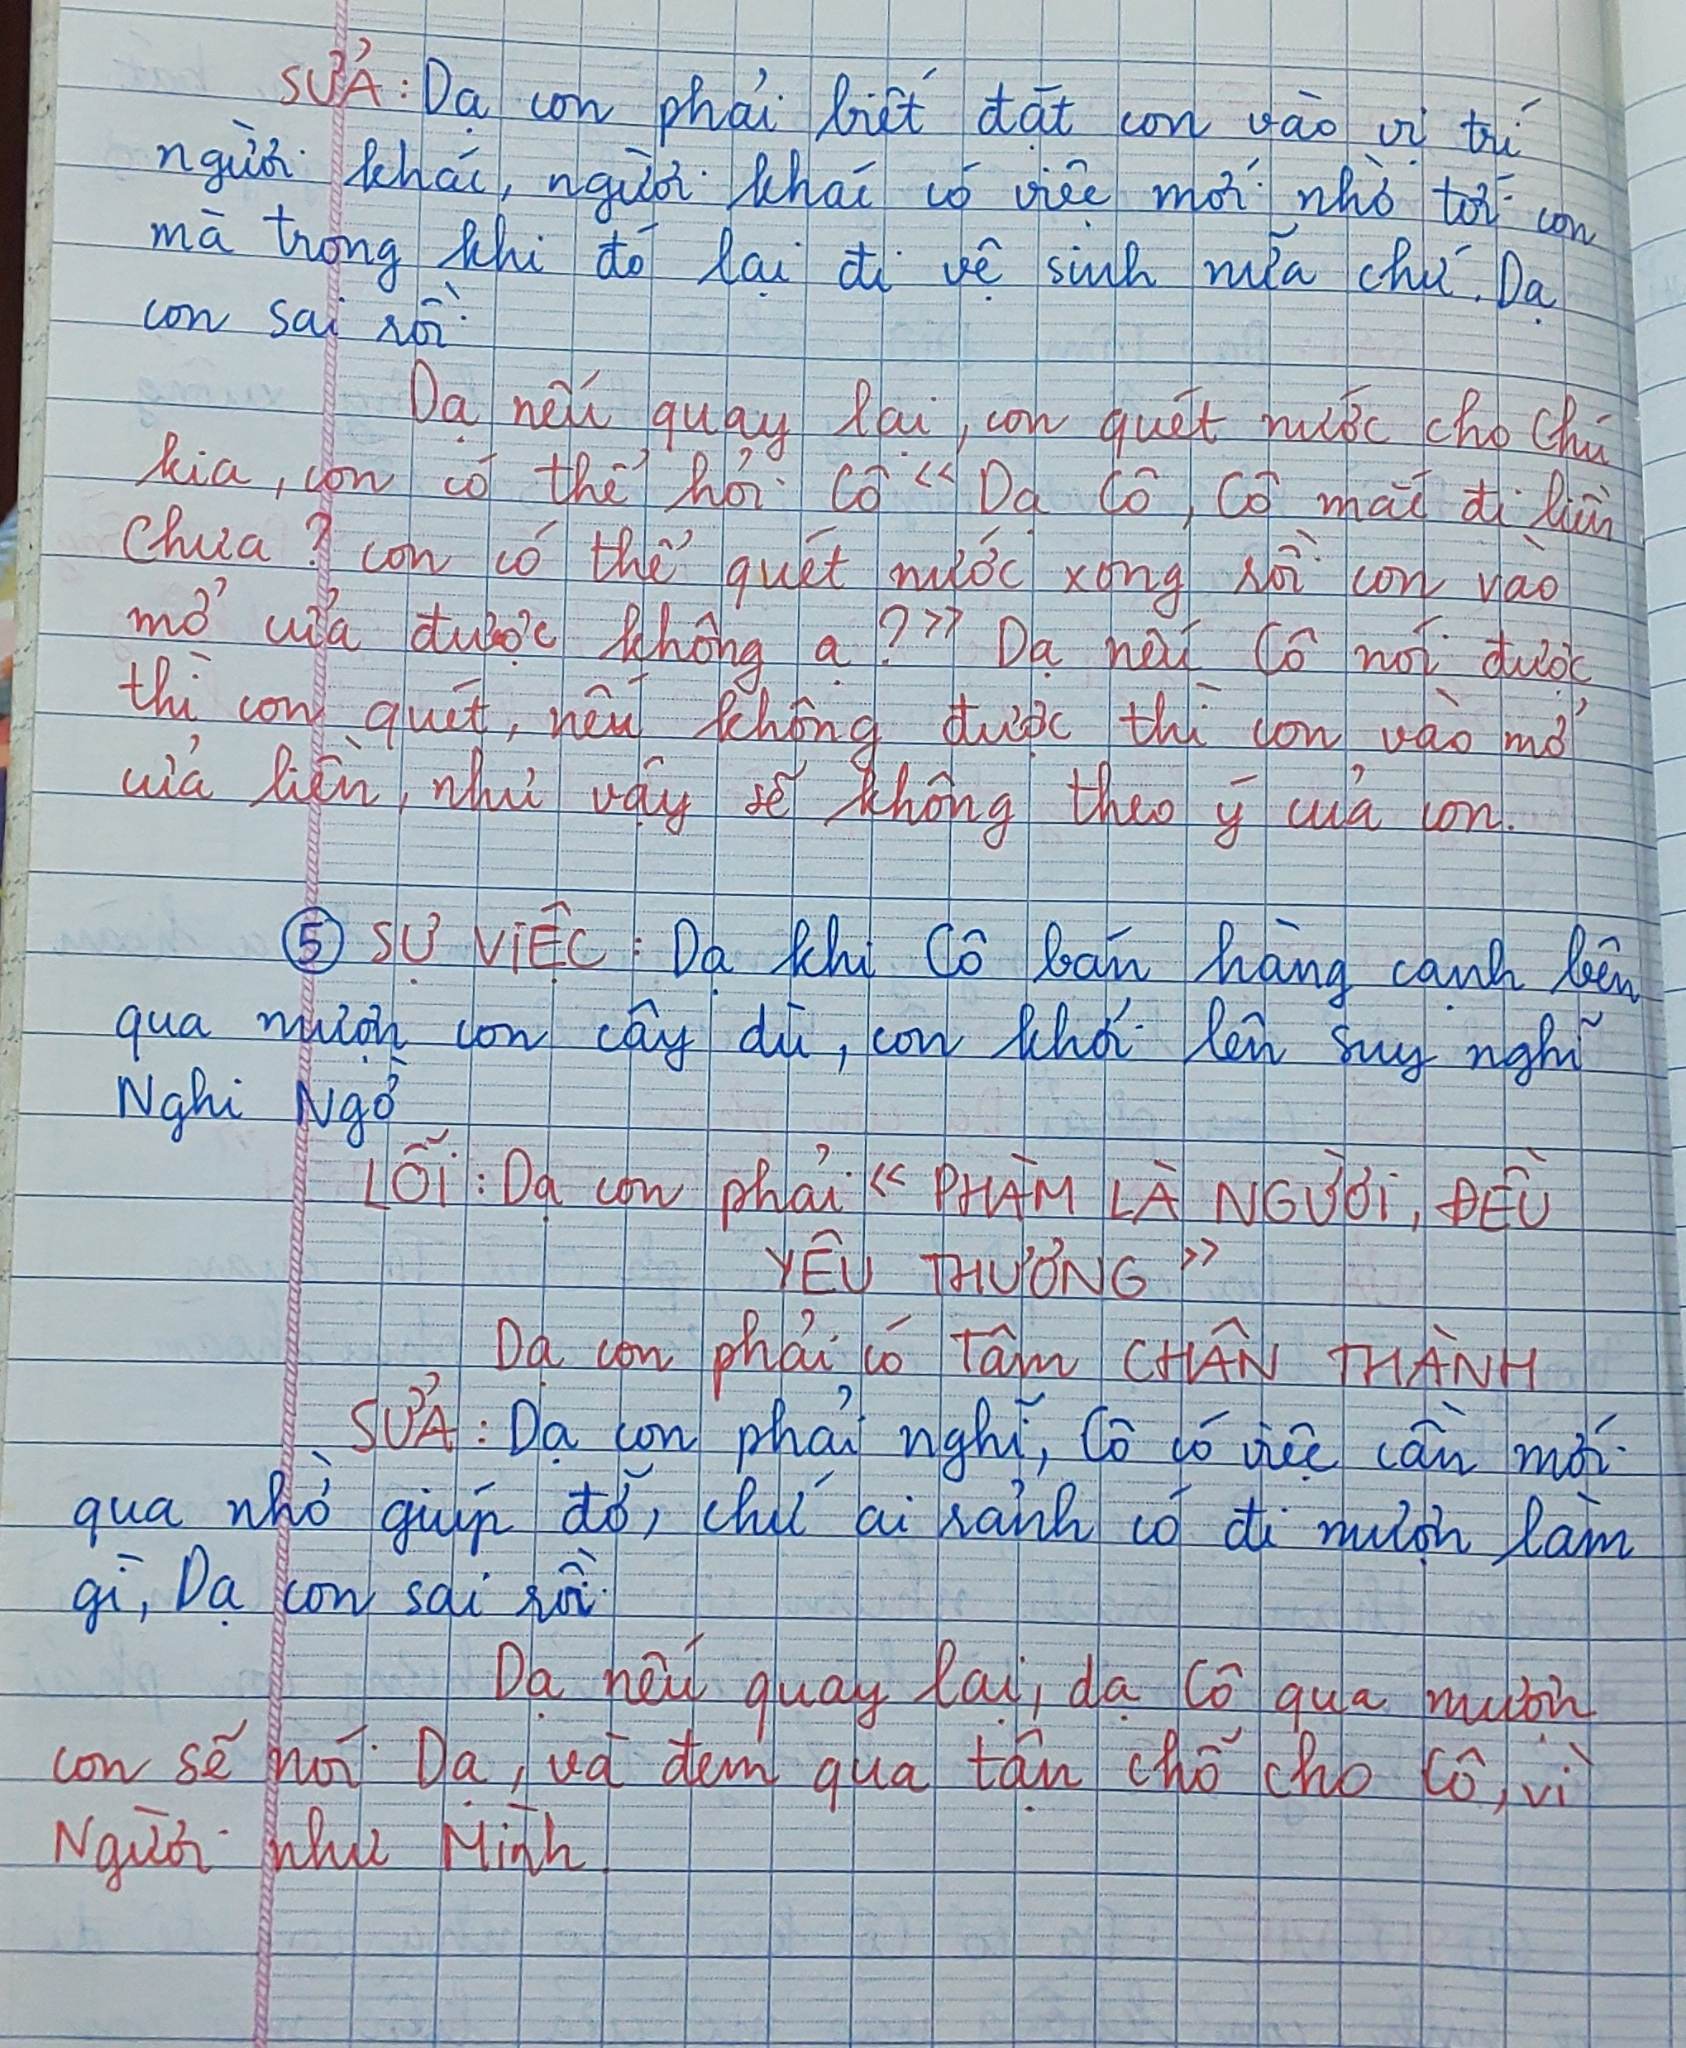 SỬA: Dạ con phải biết đặt con vào vị trí
người khác, người khác có việc mới nhờ tới con
mà trong khi đó lại đi vệ sinh nữa chứ. Dạ
con sai rồi
Dạ nếu quay lại, con quét nước cho chú
kia, con có thể hỏi Cô “Dạ Cô, Cô mắc đi liền
chưa? con có thể quét nước xong rồi con vào
mở cửa được không ạ?” Dạ nếu Cô nói được
thì con quét, nếu không được thì con vào mở
cửa liền, như vậy sẽ không theo ý của con.
⑤ SỰ VIỆC: Dạ khi Cô bán hàng cạnh bên
qua mượn con cây dù, con khởi lên suy nghĩ
Nghi Ngờ
LỖI: Dạ con phải “PHÀM LÀ NGƯỜI, ĐỀU
YÊU THƯƠNG”
Dạ con phải có Tâm CHÂN THÀNH
SỬA: Dạ con phải nghĩ, Cô có việc cần mới
qua nhờ giúp đỡ, chứ ai rảnh có đi mượn làm
gì, Dạ con sai rồi
Dạ nếu quay lại, dạ Cô qua mượn
con sẽ nói Dạ, và đem qua tận chỗ cho Cô, vì
Người như Mình